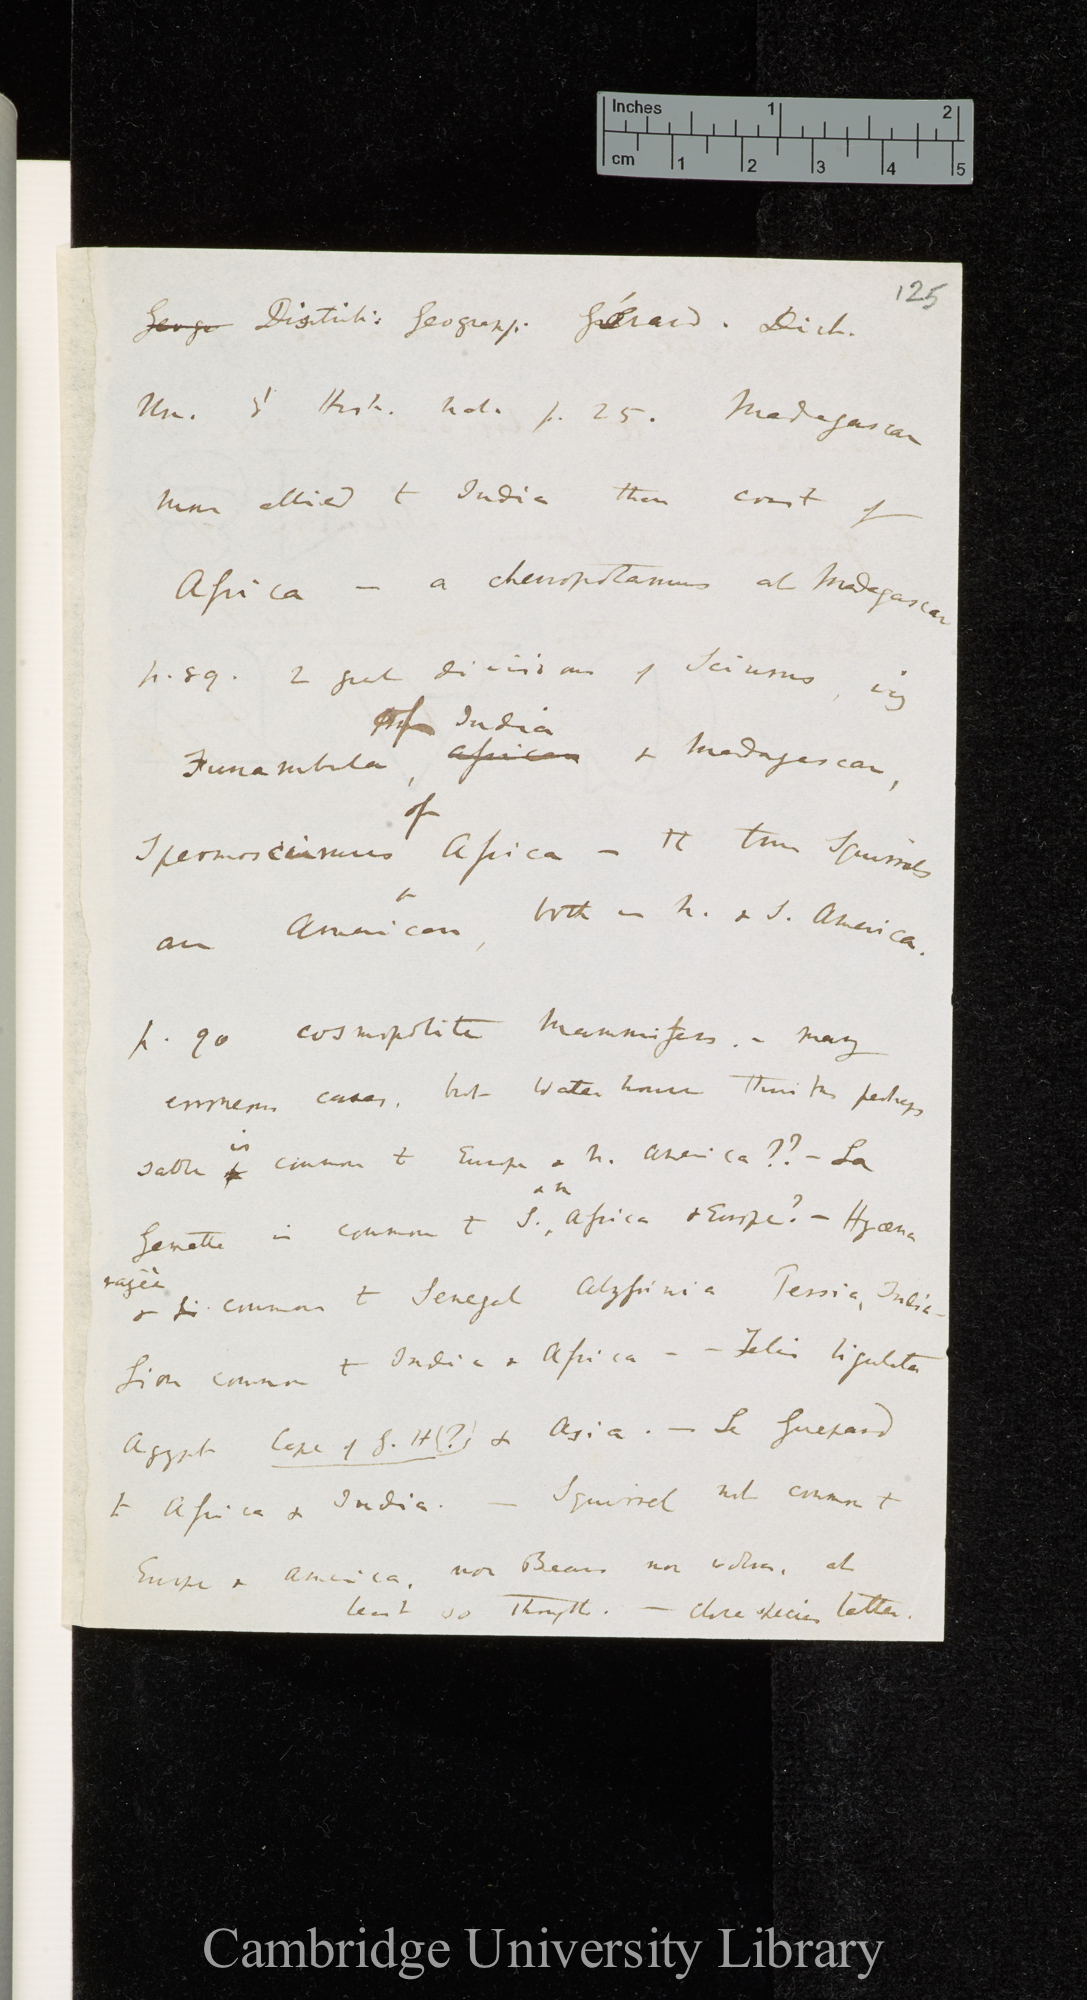 Inches 1 2
cm 1 2 3 4 5
125
Geogr Distrib: Geograph. Gérard. Dict.
Un. d' Hist. nat. p. 25. Madagascar
more allied to India than coast of
Africa — a choeropotamus at Madagascar
p. 89. 2 great divisions of Sciurus, viz
of India
Funambula, African & Madagascar,
of
Spermosciurus Africa — The true Squirrels
are American, both in N. & S. America.
p. 90 cosmopolite Mammifers. — many
erroneous cases. but Waterhouse thinks perhaps
is
Sable common to Europe & N. America?? — La
& N
Genette is common to S. Africa & Europe? — Hyæna
rayée
& is common to Senegal Abyssinia Persia, India —
Lion common to India & Africa — — Felis ligulata
Egypt Cape of G. H (?) & Asia. — Le Guepard
to Africa & India. — Squirrel not common to
Europe & America, nor Bears nor wolves, at
least so thought. — close species latter.
Cambridge University Library